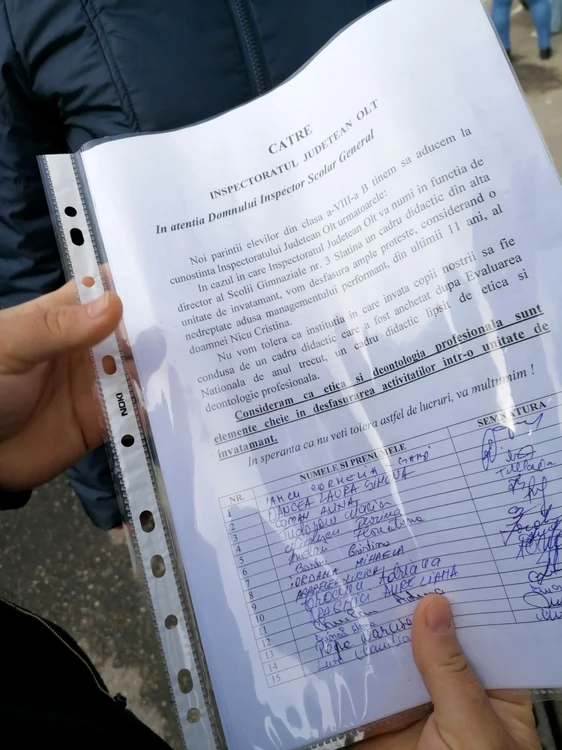 CATRE
INSPECTORATUL JUDETEAN OLT
In atentia Domnului Inspector Scolar General
Noi parintii elevilor din clasa a-VIII-a B tinem sa aducem la
cunostinta Inspectoratului Judetean Olt urmatoarele:
In cazul in care Inspectoratul Judetean Olt va numi in functia de
director al Scolii Gimnaziale nr. 3 Slatina un cadru didactic din alta
unitate de invatamant, vom desfasura ample proteste, considerand o
nedreptate adusa managementului performant, din ultimii 11 ani, al
doamnei Nicu Cristina.
Nu vom tolera ca institutia in care invata copii nostrii sa fie
condusa de un cadru didactic care a fost anchetat dupa Evaluarea
Nationala de anul trecut, un cadru didactic lipsit de etica si
deontologie profesionala.
Consideram ca etica si deontologia profesionala sunt
elemente cheie in desfasurarea activitatilor intr-o unitate de
invatamant.
In speranta ca nu veti tolera astfel de lucruri, va multumim !
NR. NUMELE SI PRENUMELE SEMNATURA
1 CORNELIA
2 LAURA SIMONA
3 COMAN ALINA
4
5
6
7
8 IORDANA MIHAELA
9
10 ADRIANA
11 AURELIANA
12
13
14
15
NOKI